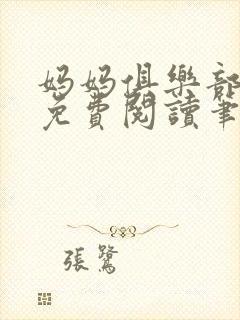 妈妈俱樂部
免費閱讀筆
張鷺